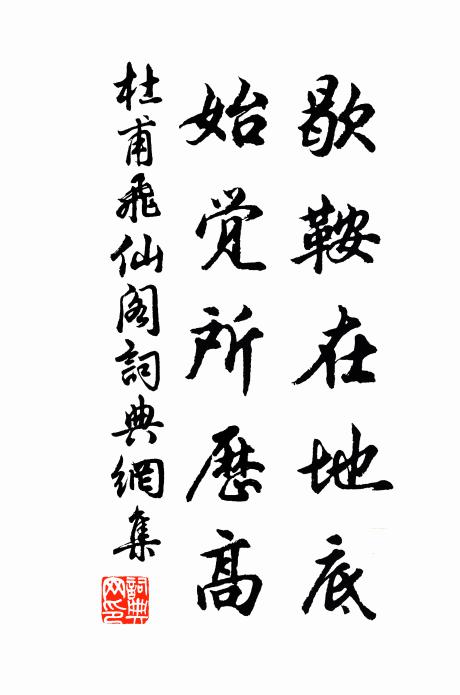 歇鞍在地底
始觉所歷高
杜甫飛仙阁詞典網集
詞典
网印